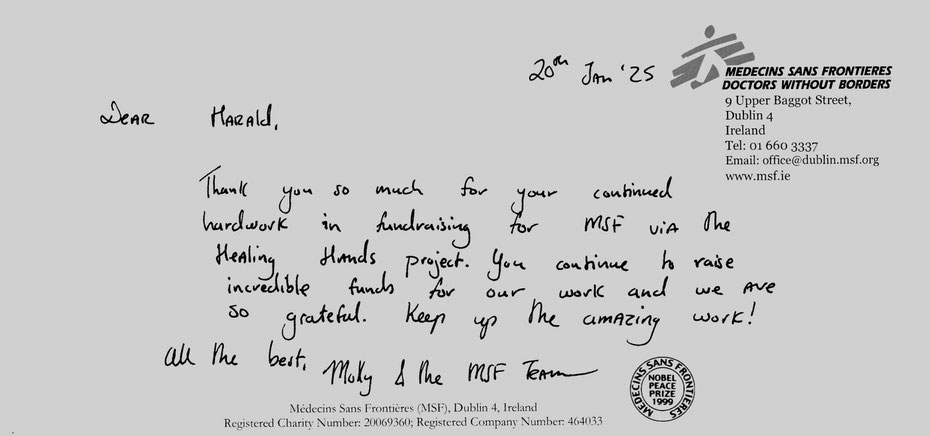 20th Jan '25
MEDECINS SANS FRONTIERES
DOCTORS WITHOUT BORDERS
9 Upper Baggot Street,
Dublin 4
Ireland
Tel: 01 660 3337
Email: office@dublin.msf.org
www.msf.ie
Dear Harald,
Thank you so much for your continued
hardwork in fundraising for MSF via the
Healing Hands project. You continue to raise
incredible funds for our work and we are
so grateful. Keep up the amazing work!
All the best,
Molly & the MSF Team
MÉDECINS SANS FRONTIÈRES
NOBEL
PEACE
PRIZE
1999
Médecins Sans Frontières (MSF), Dublin 4, Ireland
Registered Charity Number: 20069360; Registered Company Number: 464033